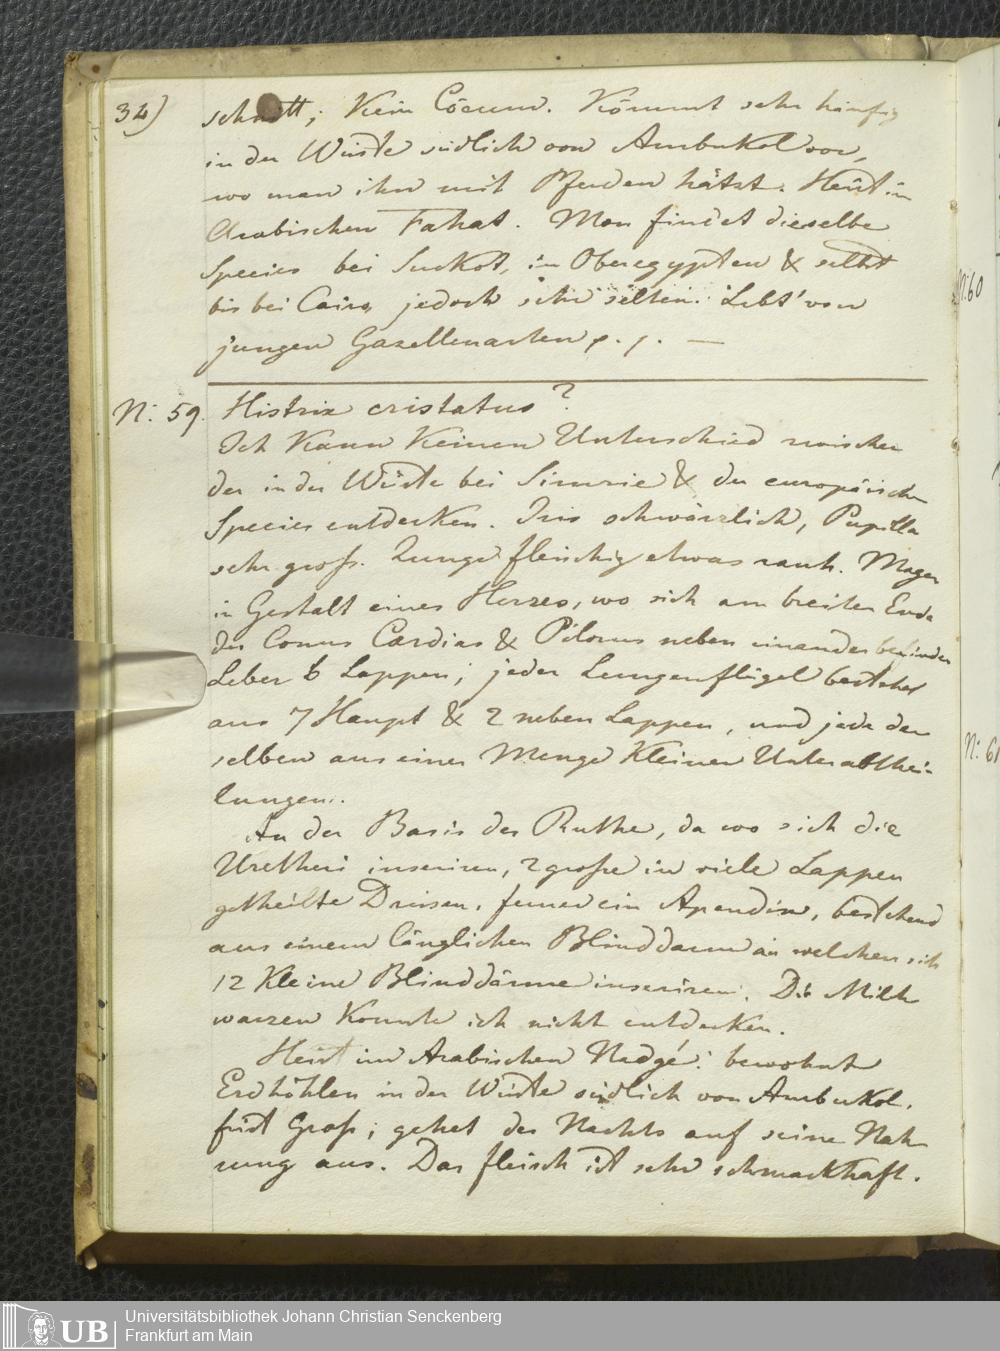 34)
schnitt; Kein Cöcum. Kömmt sehr häufig
in der Wüste südlich von Ambukol vor,
wo man ihn mit Pferden hätzt. Heist im
Arabischen Fahat. Man findet dieselbe
Species bei Suckot, in Oberegypten & selbst
bis bei Cairo, jedoch sehr selten. Lebt von
jungen Gazellenarten p. p. —
N: 59. Histrix cristatus?
Ich Kann Keinen Unterschied zwischen
der in der Wüste bei Simrie & der europäischen
Species entdecken. Iris schwärzlich, Pupilla
sehr groß. Zunge fleischig etwas rauh. Magen
in Gestalt eines Herzes, wo sich am breiten Ende
des Conus Cardias & Pilorus neben einander befinden
Leber 6 Lappen; jeder Lungenflügel bestehet
aus 7 Haupt & 2 neben Lappen, und jede der
selben aus einer Menge Kleiner Unterabthei-
lungen.
An der Basis der Ruthe, da wo sich die
Uretheri inseriren, 2 große in viele Lappen
getheilte Drüsen, ferner ein Apendix, bestehend
aus einem länglichen Blinddarm an welchen sich
12 Kleine Blinddärme inseriren. Die Milch
warzen Konnte ich nicht entdecken.
Heist im Arabischen Nedgé: bewohnt
Erdhöhlen in der Wüste südlich von Ambukol.
frist Gras; gehet des Nachts auf seine Nah
rung aus. Das fleisch ist sehr schmackhaft.
N: 60
N: 61
UB
Universitätsbibliothek Johann Christian Senckenberg
Frankfurt am Main